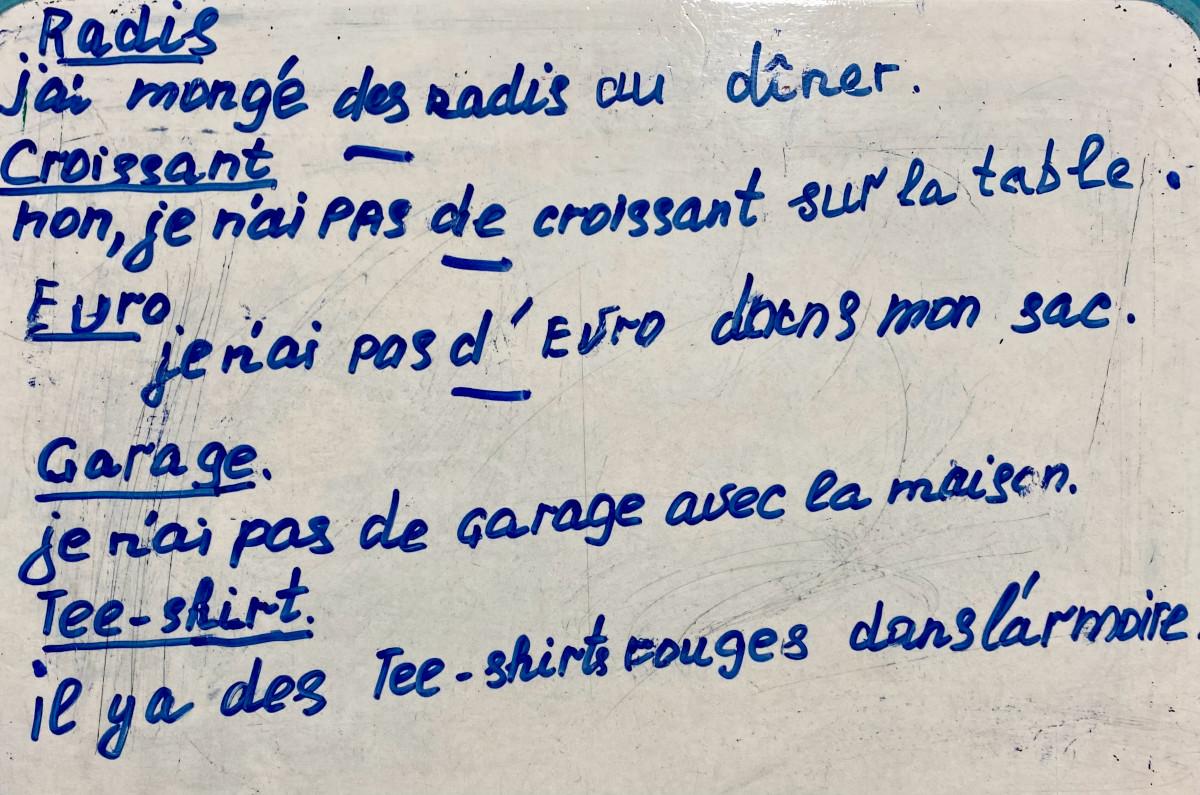 Radis
j'ai mangé des radis au dîner.
Croissant
non, je n'ai PAS de croissant sur la table.
Euro
je n'ai pas d'Euro dans mon sac.
Garage.
je n'ai pas de Garage avec la maison.
Tee-shirt.
il ya des Tee-shirts rouges dans l'armoire